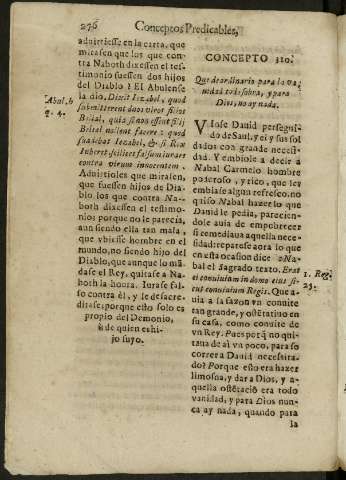 276 Conceptos Predicables,
aduirtiesse en la carta, que
mirasen que los que con-
tra Naboth dixessen el tes-
timonio fuessen dos hijos
del Diablo? El Abulense
la dio, Dixit Iezabel, quod
submitterent duos viros filios
Belial, quia si non essent filij
Belial nollent facere: quod
suadebat Iezabel, & si Rex
Iuberet, scilicet falsum iurare
contra virum innocentem.
Aduirtioles que mirasen,
que fuessen hijos de Dia-
blo los que contra Na-
both dixessen el testimo-
nio: porque no le parecia,
aun siendo ella tan mala
que vbiesse hombre en el
mundo, no siendo hijo del
Diablo, que aunque lo mã-
dase el Rey, quitase a Na-
both la honra. Iurase fal-
so contra èl, y le desacre-
ditase; porque esto solo es
propio del Demonio,
ù de quien es hi-
jo suyo.
Abul. h
q. 4.
CONCEPTO 310.
Que de ordinario para la va-
nidad todo sobra, y para
Dios, no ay nada.
VIose Dauid persegui-
do de Saul, y el y sus sol
dados con grande necesi-
dad. Y embiole a decir a
Nabal Carmelo hombre
poderoso, y rico, que les
embiase algun refresco, no
quiso Nabal hazer lo que
Dauid le pedia, parecien-
dole auia de empobrecer
si remediaua aquella nece-
sidad: reparase aora lo que
en esta ocasion dice de Na-
bal el sagrado texto. Erat
ei conuiuium in domo eius si-
cut conuiuium Regis. Que a-
uia a la sazon vn conuite
tan grande, y ostẽtatiuo en
su casa, como conuite de
vn Rey. Pues por q̃ no qui-
taua de ai vn poco, para so
correr a Dauid necesita-
do? Porque esto era hazer
limosna, y dar a Dios, y a-
quella ostẽtaciõ era todo
vanidad, y para Dios nun-
ca ay nada, quando para
la
1. Reg.
25.